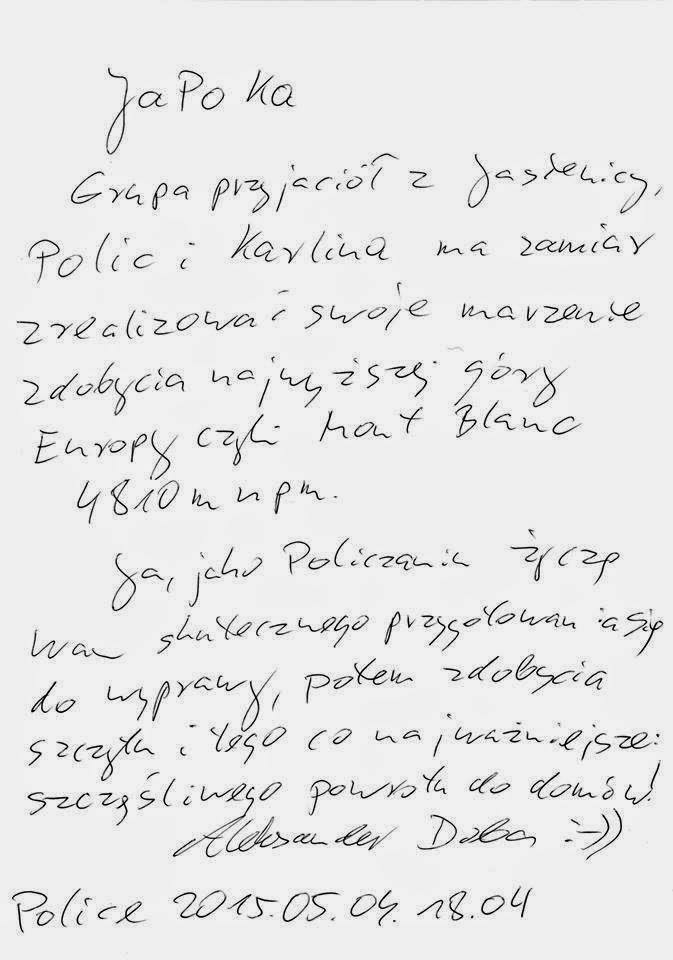 JaPoKa
Grupa przyjaciół z Jasienicy,
Polic i Karlina ma zamiar
zrealizować swoje marzenie
zdobycia najwyższej góry
Europy czyli Mont Blanc
4810 m npm.
Ja, jako Policzanin życzę
Wam skutecznego przygotowania się
do wyprawy, potem zdobycia
szczytu i tego co najważniejsze:
szczęśliwego powrotu do domów!
Aleksander Doba :-))
Police 2015.05.04. 18.04